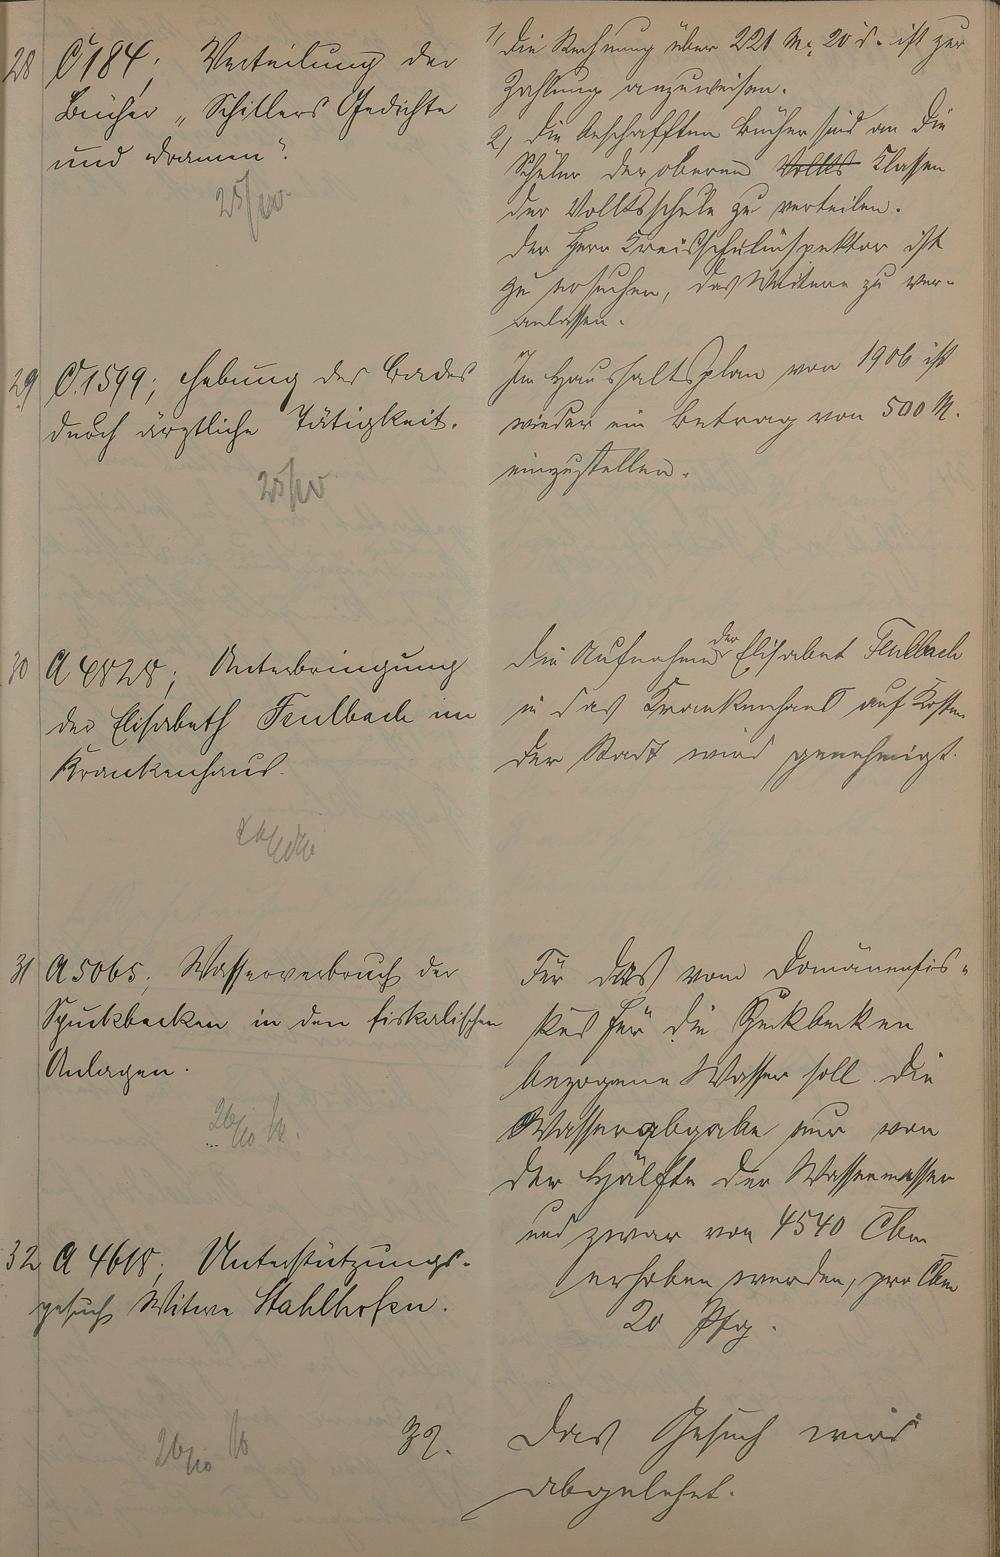 28 C 184; Verteilung der
Bücher „Schillers Gedichte
und Dramen".
1, Die Rechnung über 221 M. 20 d. ist zur
Zahlung anzuweisen.
2, Die beschafften Bücher sind an die
Schüler der oberen Volks Classen
der Volksschule zu verteilen.
Der Herr Kreisschulinspektor ist
zu ersuchen, das Weitere zu ver-
anlassen.
29 C. 1599; Hebung des Bades
durch ärztliche Tätigkeit.
Im Haushaltsplan von 1906 ist
wieder ein Betrag von 500 M.
einzustellen.
30 A 4828; Unterbringung
der Elisabeth Feulbach im
Krankenhaus.
Die Aufnahme der Elisabet Feulbach
in das Krankenhaus auf Kosten
der Stadt wird genehmigt.
31 A 5065; Wasserverbrauch der
Spuckbecken in den fiskalischen
Anlagen.
26/10
Für das vom Domänenfis-
kus für die Spuckbecken
bezogene Wasser soll die
Wasserabgabe nur von
der Hälfte der Wassermesser
und zwar von 4540 Cbm
erhoben werden, pro Cbm
20 Pfg.
32 A 4618; Unterstützungs-
gesuch Witwe Stahlhofen.
26/10
32. Das Gesuch wird
abgelehnt.